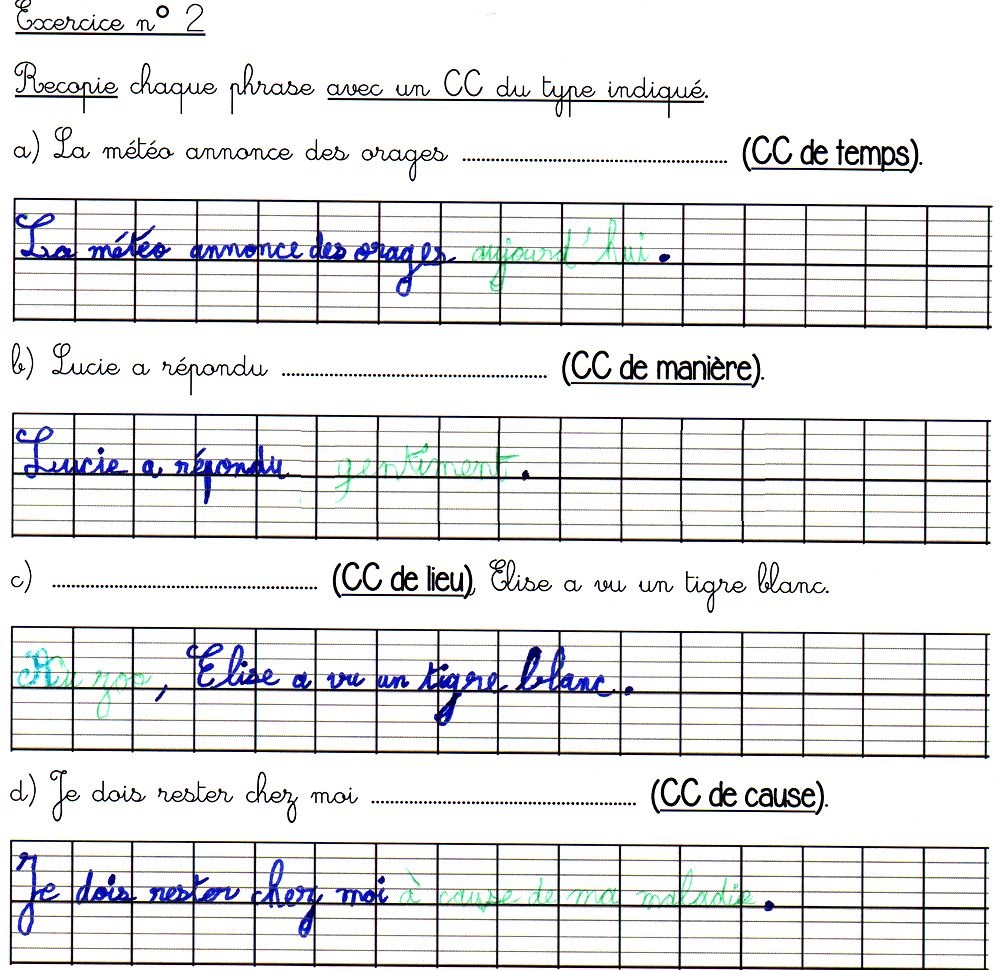 Exercice n° 2
Recopie chaque phrase avec un CC du type indiqué.
a) La météo annonce des orages .......................................................... (CC de temps).
La météo annonce des orages aujourd'hui.
b) Lucie a répondu .......................................................... (CC de manière).
Lucie a répondu gentiment.
c) .......................................................... (CC de lieu), Elise a vu un tigre blanc.
Au zoo, Elise a vu un tigre blanc.
d) Je dois rester chez moi .......................................................... (CC de cause).
Je dois rester chez moi à cause de ma maladie.